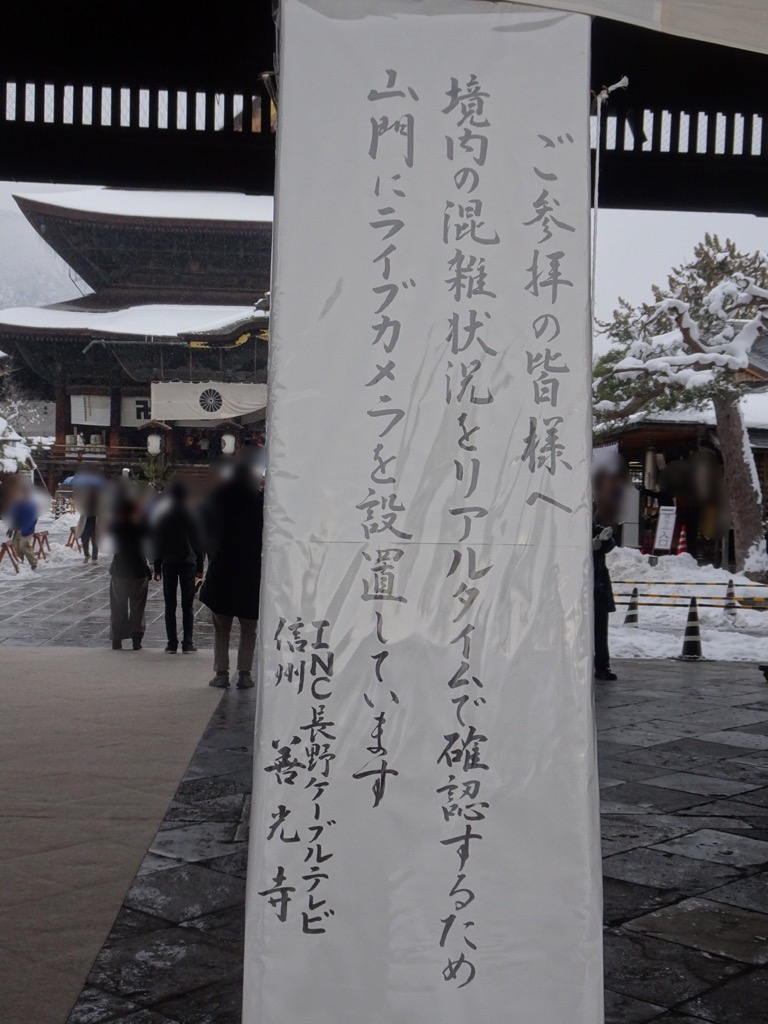 ご参拝の皆様へ
境内の混雑状況をリアルタイムで確認するため
山門にライブカメラを設置しています
INC長野ケーブルテレビ
信州 善光寺
卍
入口